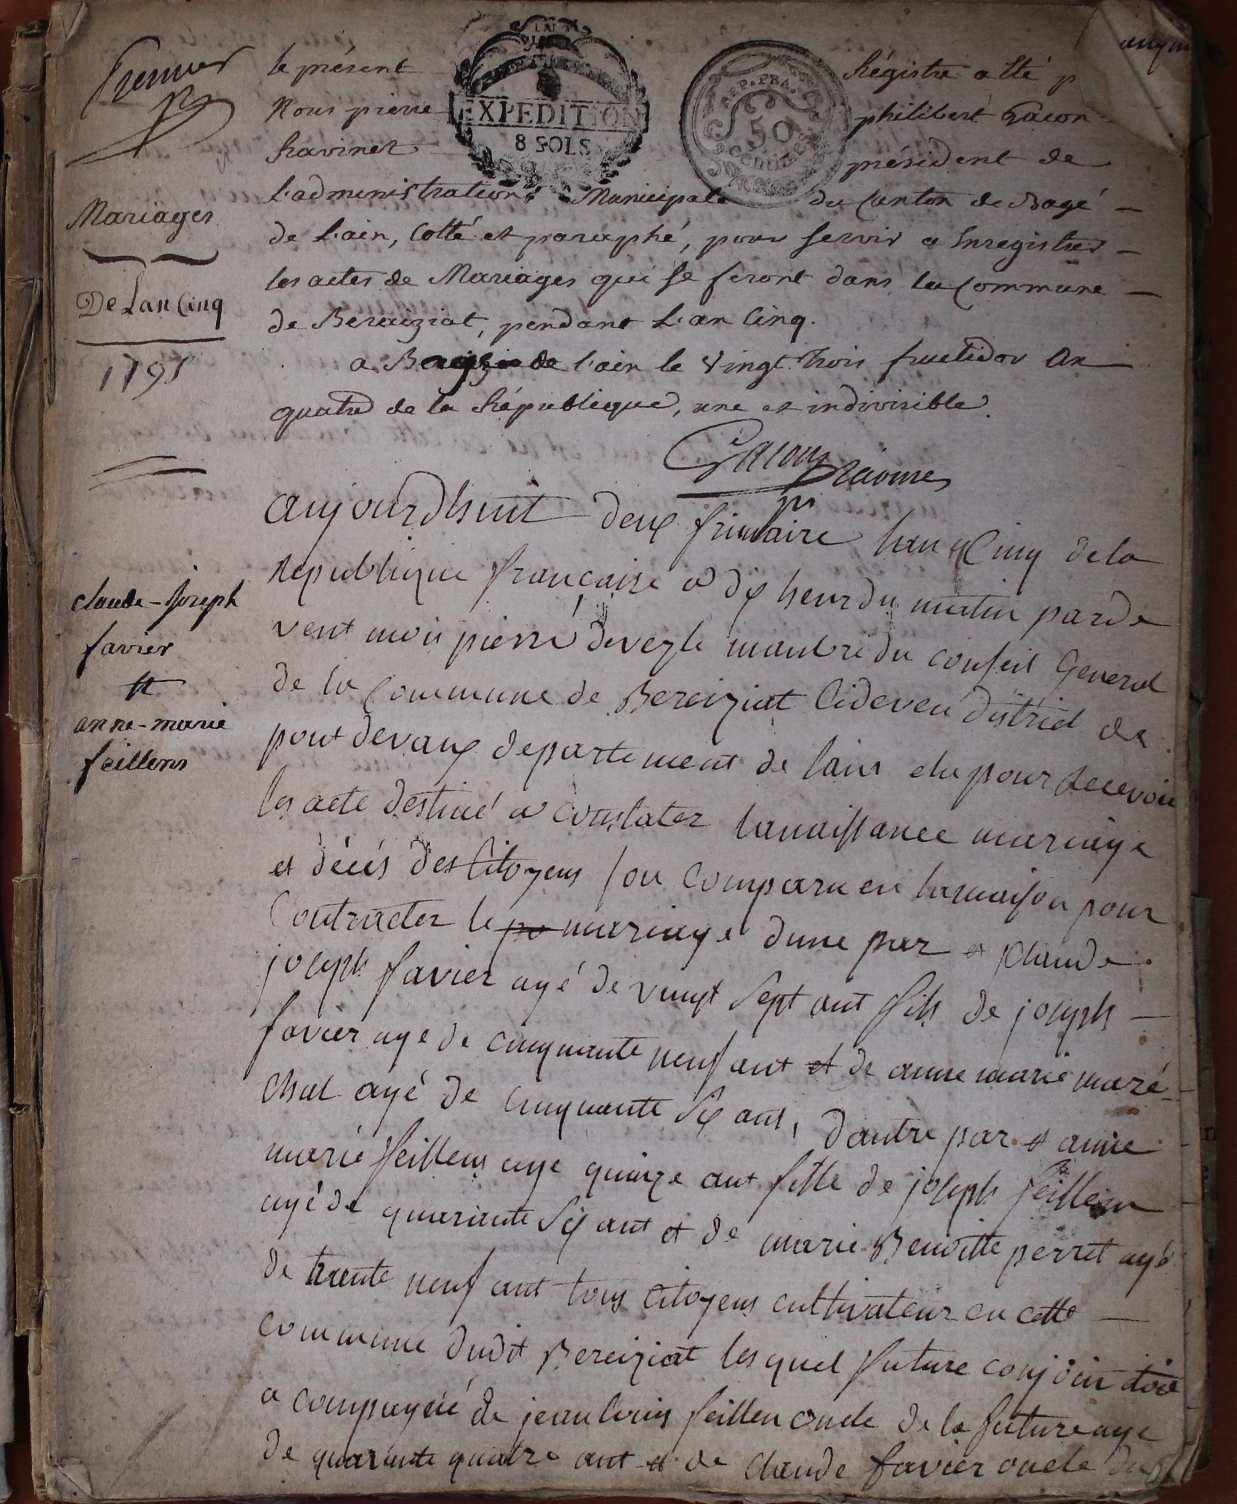 Premier
Mariages
De Lan Cinq
1797
claude-Joseph
favier
et
anne-marie
feillens
EXPEDITION
8 SOLS
REP. FRA.
50
centimes
le présent Régistre a été p
Nous pierre philibert Gacon
Ravinet président de
l'administration Municipale du Canton de Bagé
de l'ain, Cotté et paraphé, pour servir a Enregistrer
les actes de Mariages qui se feront dans la Commune
de Bereiziat, pendant l'an Cinq.
a de l'ain le Vingt trois fructidor an
quatre de la République, une et indivisible.
Gacon Ravinet
aujourdhuit deux frimaire lan Cinq de la
Republique française a dix heur du matin parde
vent moii pierre devezle manbre du conseil General
de la Commune de Bereiziat Cideven district de
pont devaux departement de lain elu pour Recevoir
les acte destiné a constater lanaissance mariage
et décés des Citoyens son comparu en lamaison pour
Contracter le mariage dune par et Claude
joseph favier agé de vingt sept ant fils de joseph
favier age de cinquante neuf ant et de anne marie maré
chal agé de cinquante six ans, dautre par et anne
marie feillens age quinze ant fille de joseph feillens
agé de quarante six ant et de marie Benoitte perret agé
de trente neuf ant tous Citoyens cultivateur en cette
commune dudit Bereiziat lesquel future conjoin
a compagné de jean louis feillen oncle de la future age
de quarante quatre ant et de Claude favier oncle du